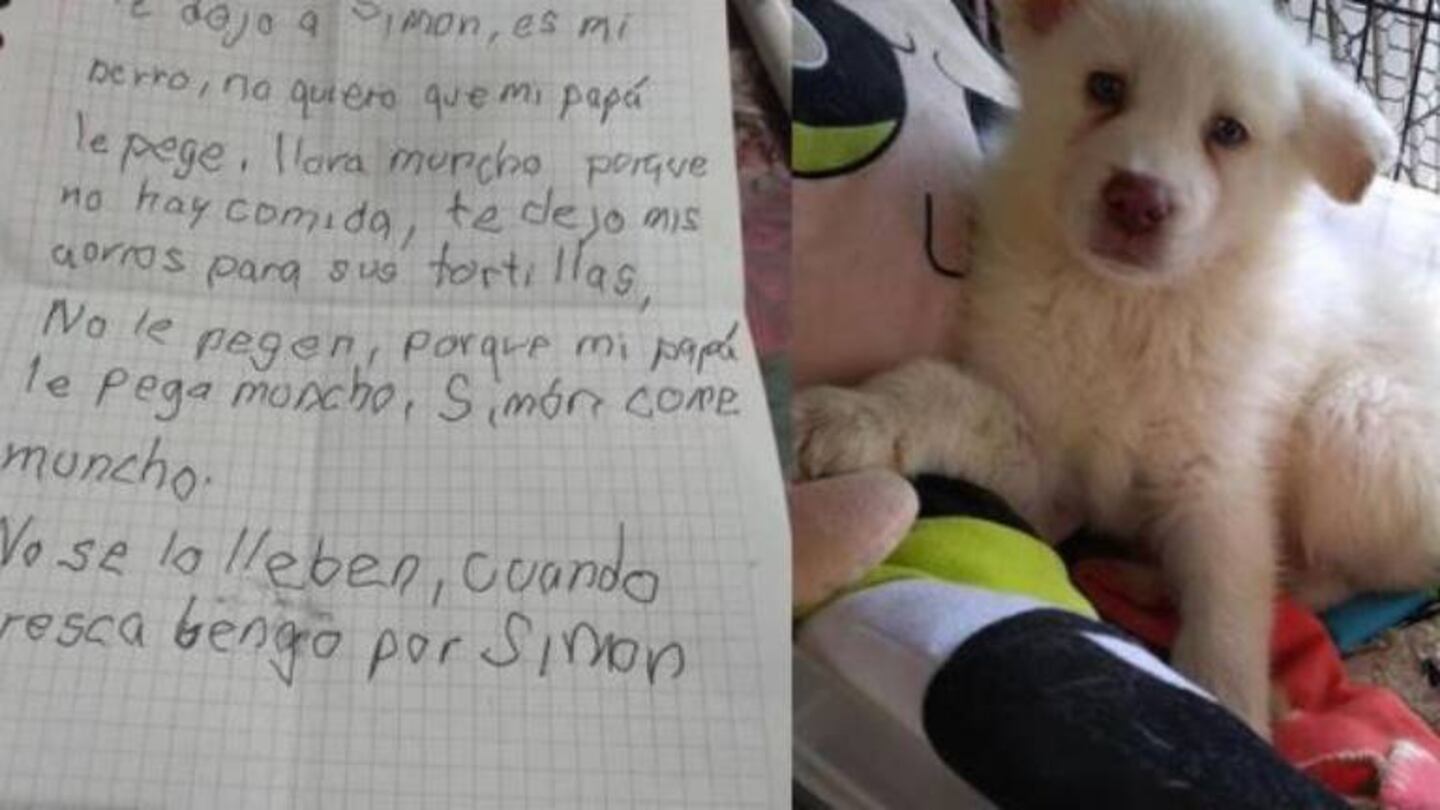 te dejo a Simon, es mi
perro, no quiero que mi papá
le pege. llora muncho porque
no hay comida, te dejo mis
aorros para sus tortillas,
No le pegen, porque mi papá
le pega moncho, Simón come
muncho.
No se lo lleben, cuando
resca bengo por Simon